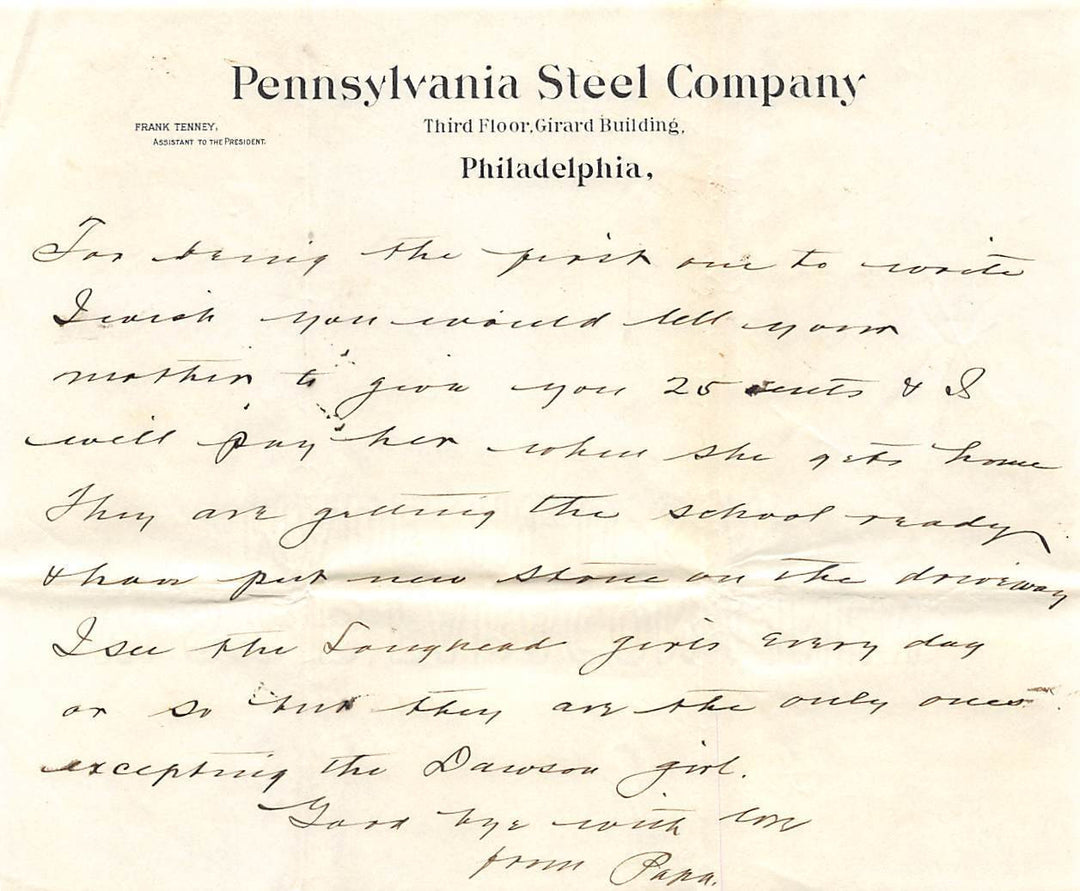 Pennsylvania Steel Company
FRANK TENNEY,
ASSISTANT TO THE PRESIDENT.
Third Floor, Girard Building,
Philadelphia,
For being the first one to write
I wish you would tell your
mother to give you 25 cents & I
will pay her when she gets home
They are getting the school ready
& have put new stone on the driveway
I see the Loughead girls every day
or so but they are the only ones
excepting the Dawson girl.
Good bye with love
from Papa.